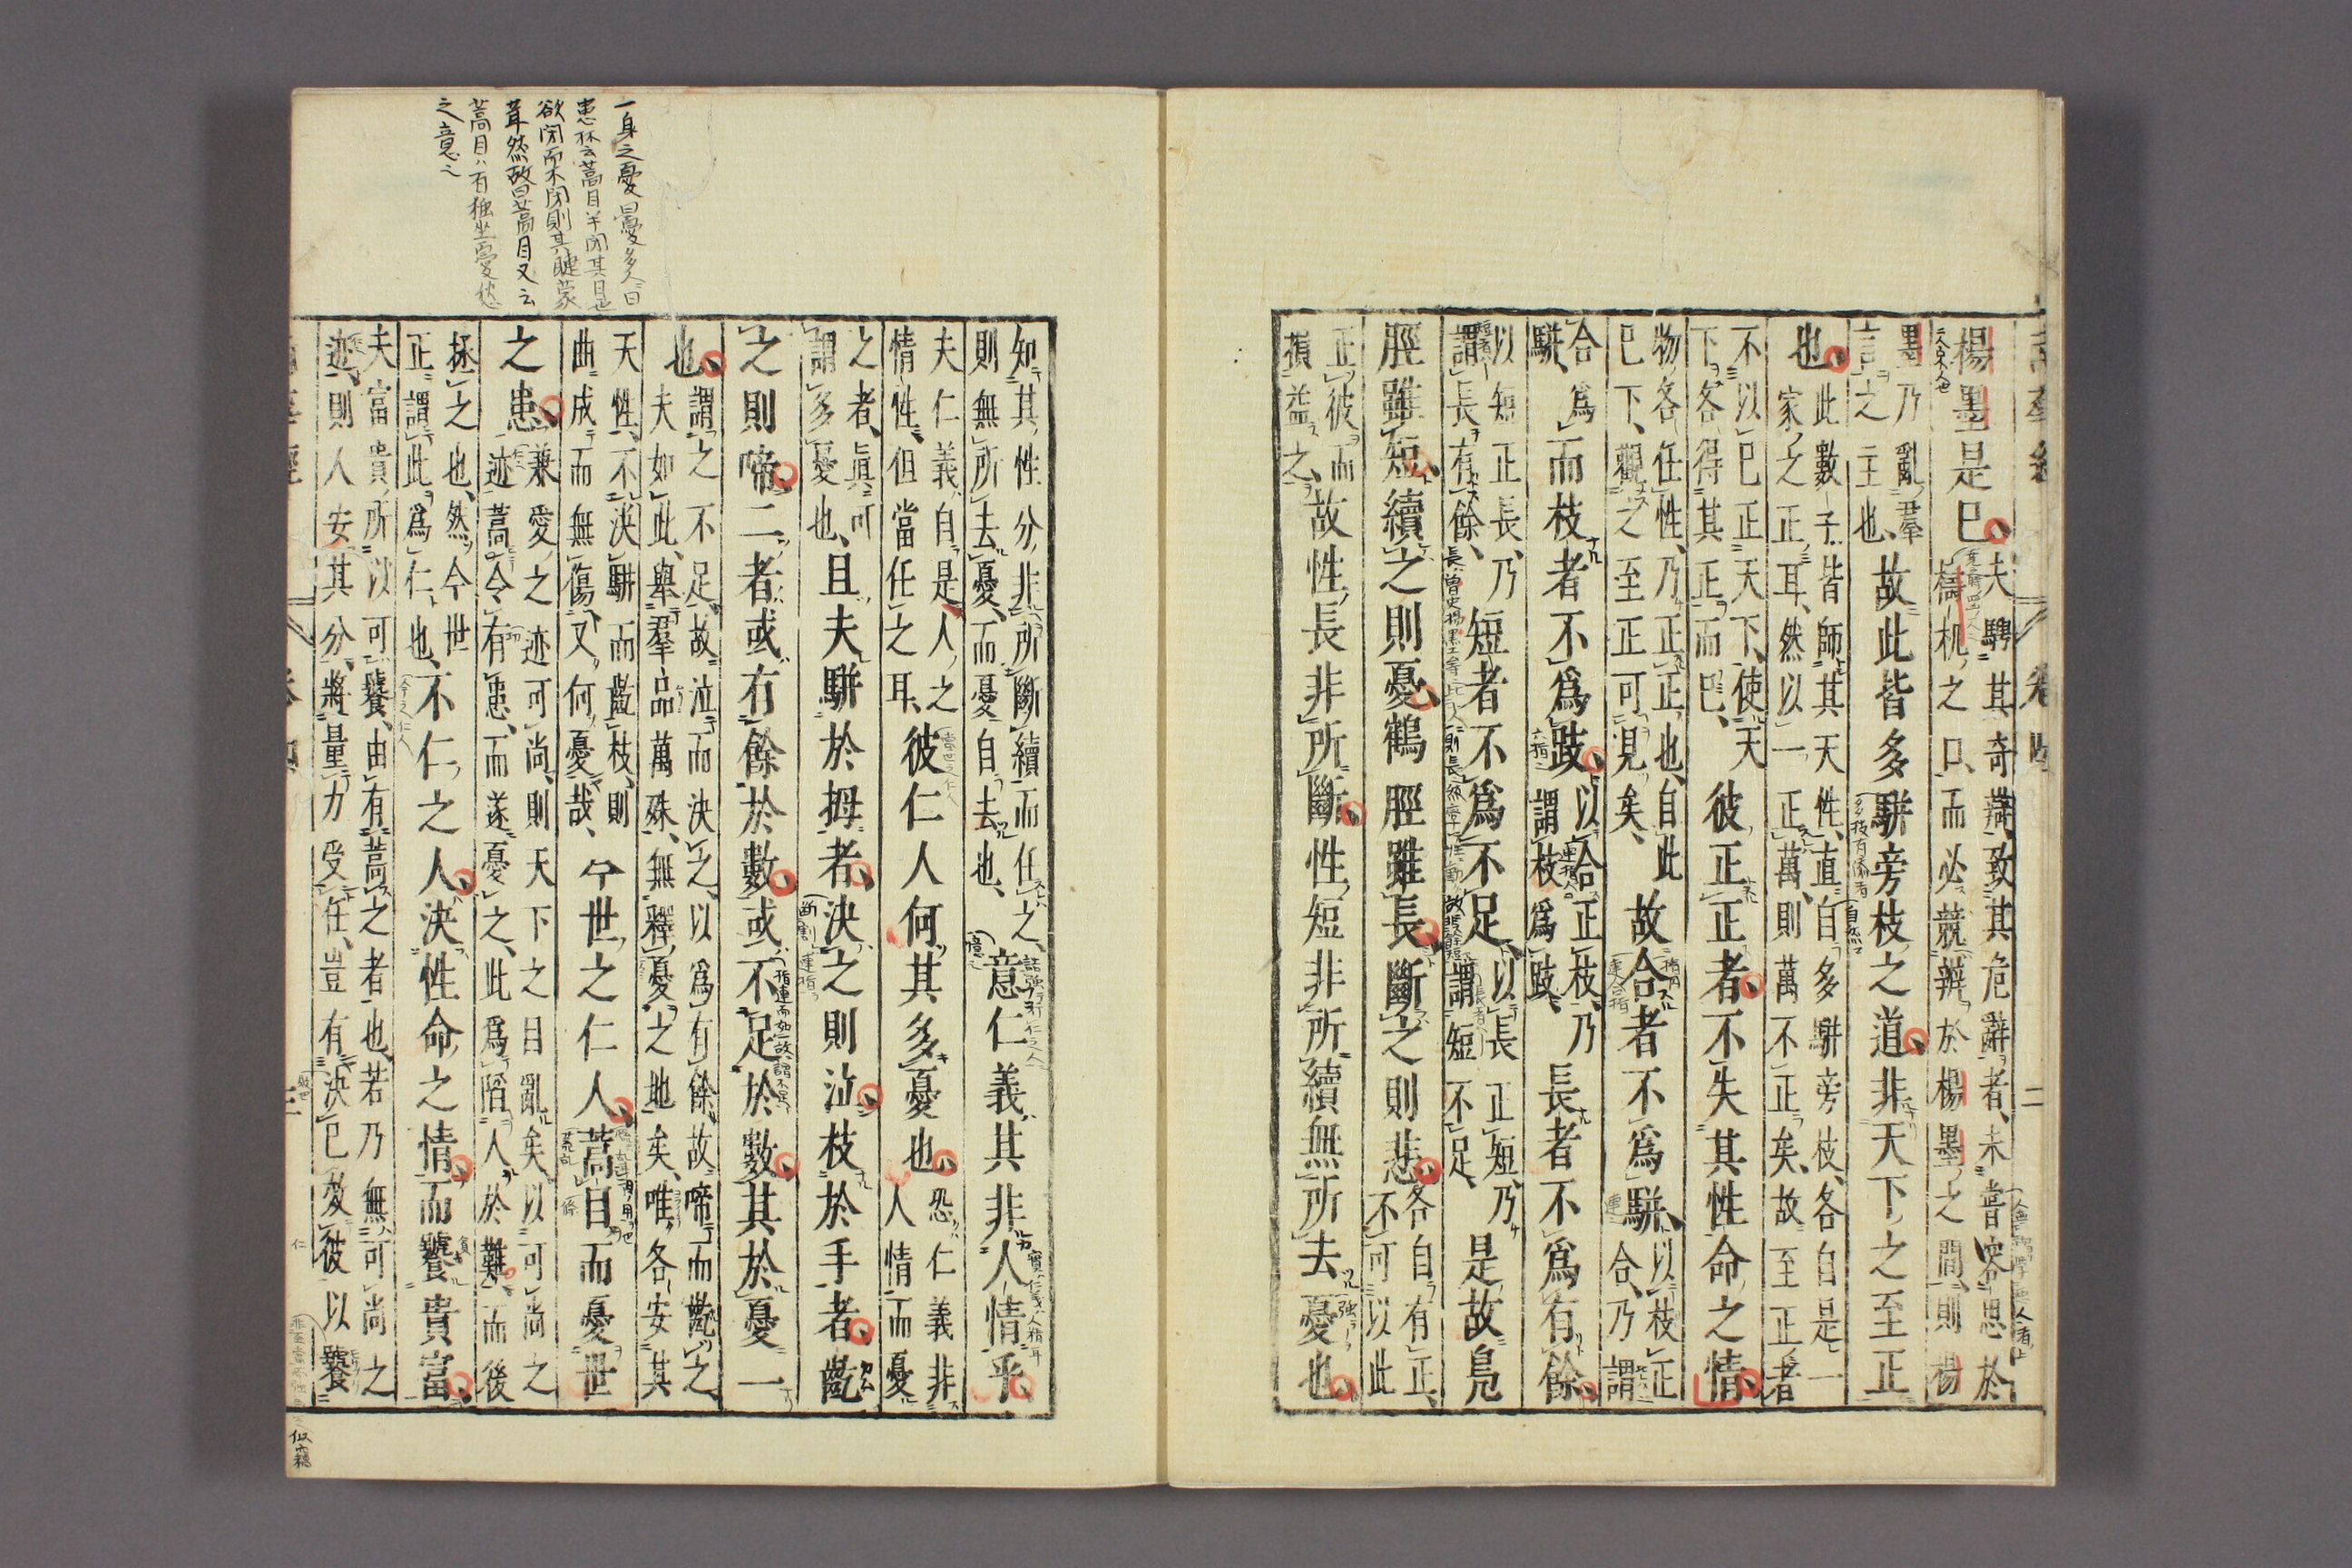 楊墨是巳夫騁其奇辯致其危辭者未甞容思於
檮杌之口而必競辯於楊墨之間則楊
墨乃亂羣
言之主也故此皆多駢旁枝之道非天下之至正
也此數子皆師其天性直自多駢旁枝各自是一
家之正耳然以一正萬則萬不正矣故至正者
不以巳正天下使天
下各得其正而巳彼正正者不失其性命之情
物各任性乃正正也自此
巳下觀之至正可見矣故合者不爲駢以枝正
合乃謂
合爲
駢而枝者不爲跂以合正枝乃
謂枝爲跂長者不爲有餘
以短正長乃
謂長有餘短者不爲不足以長正短乃
謂短不足是故鳧
脛雖短續之則憂鶴脛雖長斷之則悲各自有正
不可以此
正彼而
損益之故性長非所斷性短非所續無所去憂也
一身之憂曰憂多人曰
患林云蒿目半閉其目也
欲閉而不閉則其睫蒙
茸然故曰蒿目又云
蒿目ハ有独坐憂愁
之意也
知其性分非所斷續而任之
則無所去憂而憂自去也意仁義其非人情乎
夫仁義自是人之
情性但當任之耳彼仁人何其多憂也恐仁義非
人情而憂
之者眞可
謂多憂也且夫駢於拇者決之則泣枝於手者齕
之則啼二者或有餘於數或不足於數其於憂一
也謂之不足故泣而決之以爲有餘故啼而齕之
夫如此舉羣品萬殊無釋憂之地矣唯各安其
天性不決駢而齕枝則
曲成而無傷又何憂哉今世之仁人蒿目而憂世
之患兼愛之迹可尚則天下之目亂矣以可尚之
迹蒿令有患而遂憂之此爲陷人於難而後
拯之也然今世
正謂此爲仁也不仁之人決性命之情而饕貴富
夫富貴所以可饕由有蒿之者也若乃無可尚之
迹則人安其分將量力受任豈有決巳效彼以饕